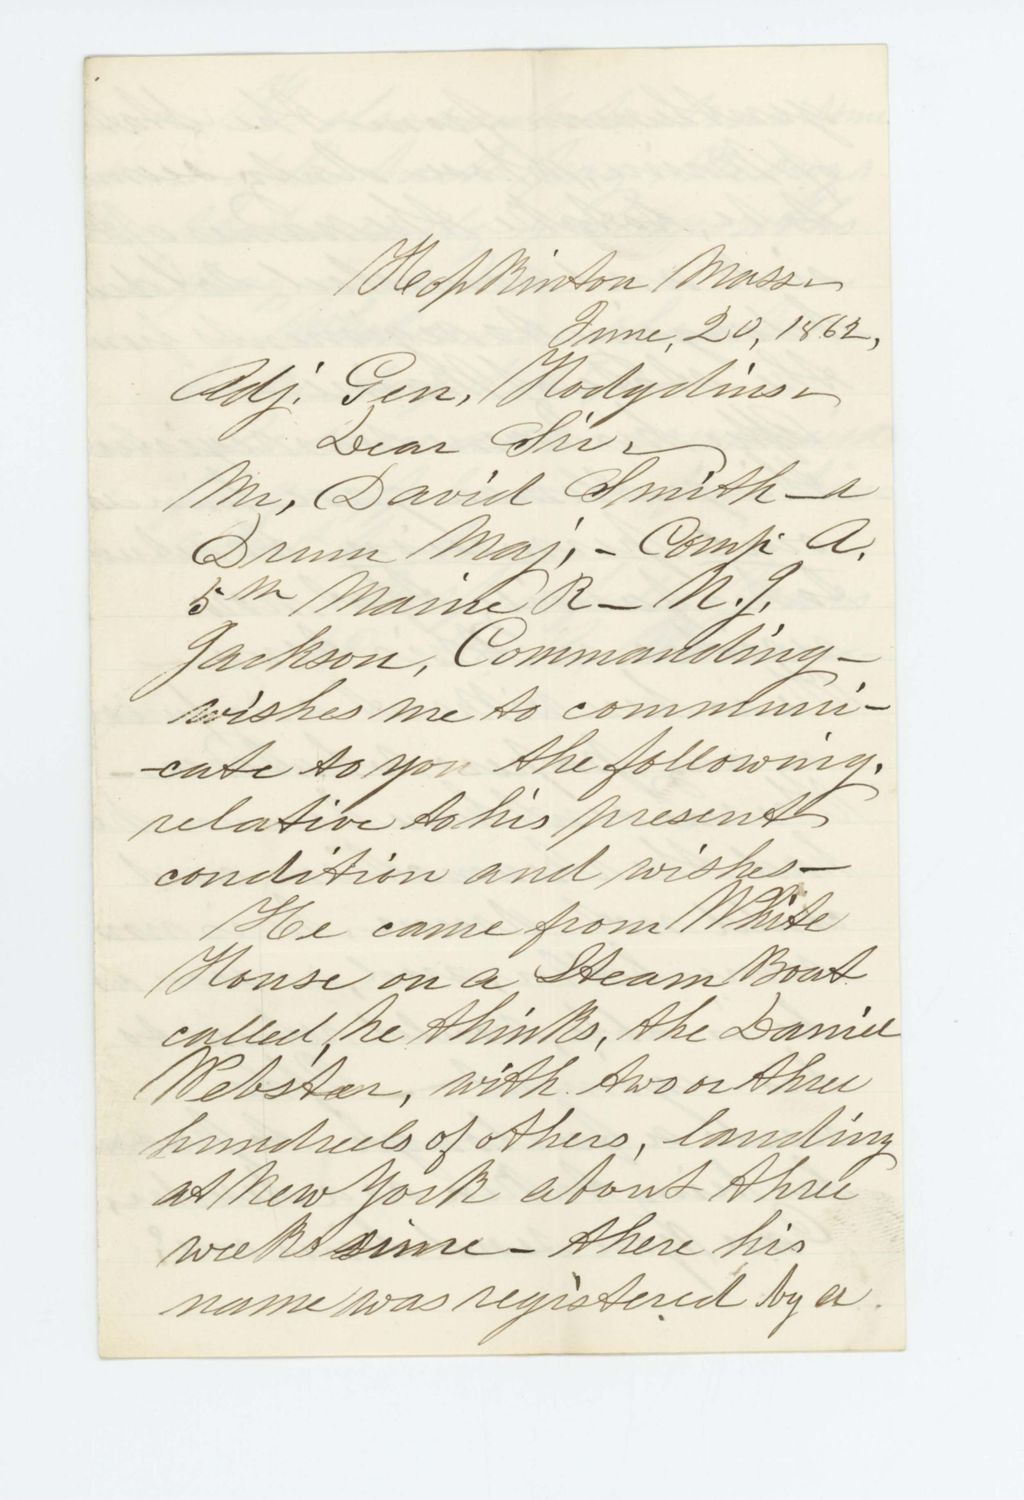 Hopkinton Mass-
June, 20, 1862,
Adj. Gen, Hodgdins-
Dear Sir,
Mr, David Smith - a
Drum Maj, - Comp. A.
5th Maine R - N. J.
Jackson, Commanding -
wishes me to communi-
-cate to you the following,
relative to his present
condition and wishes-
He came from White
House on a Steam Boat
called, he thinks, the Daniel
Webster, with two or three
hundreds of others, landing
at New York about three
weeks since - there his
name was registered by a